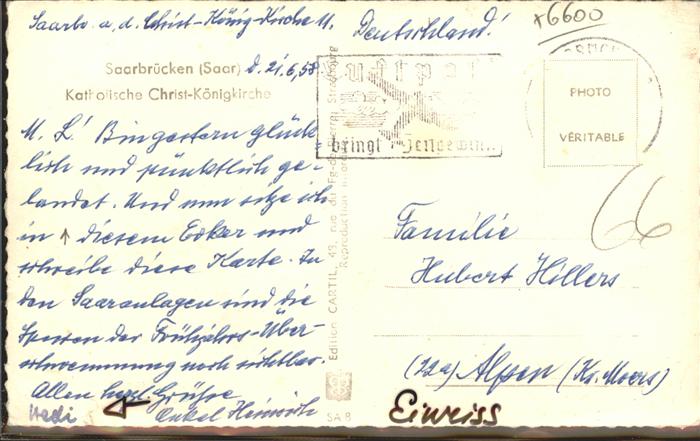 Saarbr. a. d. Christ-König-Kirche M. Deutschland!
Saarbrücken (Saar) d. 21.6.58
Katholische Christ-Königkirche
M. L! Bin gestern glück-
lich und pünktlich ge-
landet. Und nun sitze ich
in ↑ diesem Erker und
schreibe diese Karte. In
den Saaranlagen sind die
Spuren der Frühjahrs-Über-
schwemmung noch sichtbar.
Allen herzl. Grüße
Hedi Onkel Heinrich
Luftpost
bringt Zeitgewinn
Edition CARTIL, 43, rue du Fg-de-Pierre, Strasbourg
Reproduction
SA 8
x6600
PHOTO
VÉRITABLE
66
Familie
Hubert Hillers
(22a) Alpen (Kr. Moers)
Einriss